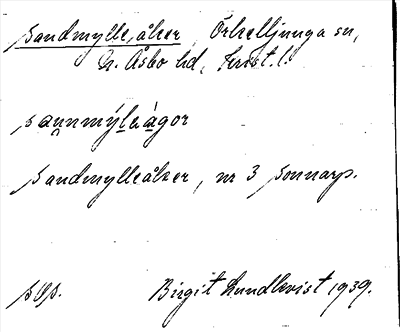 sandmylle,åker, Örkelljunga sn,
N. Åsbo hd, Krist. l.
saṇnmýleàgor
sandmylleåker, nr 3 Sonnarp.
Birgit Lundkvist 1939.